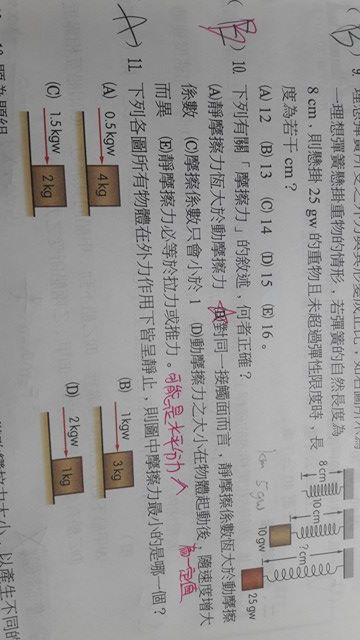 (B)
一理想彈簧懸掛重物的情形,若彈簧的自然長度為
8 cm,則懸掛 25 gw 的重物且未超過彈性限度時,長
度為若干 cm?
(A) 12 (B) 13 (C) 14 (D) 15 (E) 16。
8 cm
10 cm
? cm
10 gw
25 gw
5gw
(B) 10. 下列有關「摩擦力」的敘述,何者正確?
(A)靜摩擦力恆大於動摩擦力 (B)對同一接觸面而言,靜摩擦係數恆大於動摩擦
係數 (C)摩擦係數只會小於 1 (D)動摩擦力之大小在物體起動後,隨速度增大
為一定值
而異 (E)靜摩擦力必等於拉力或推力。可能是水平分力
(A) 11. 下列各圖所有物體在外力作用下皆呈靜止,則圖中摩擦力最小的是哪一個?
(A) 0.5 kgw 4 kg
(B) 1 kgw 3 kg
(C) 1.5 kgw 2 kg
(D) 2 kgw 1 kg